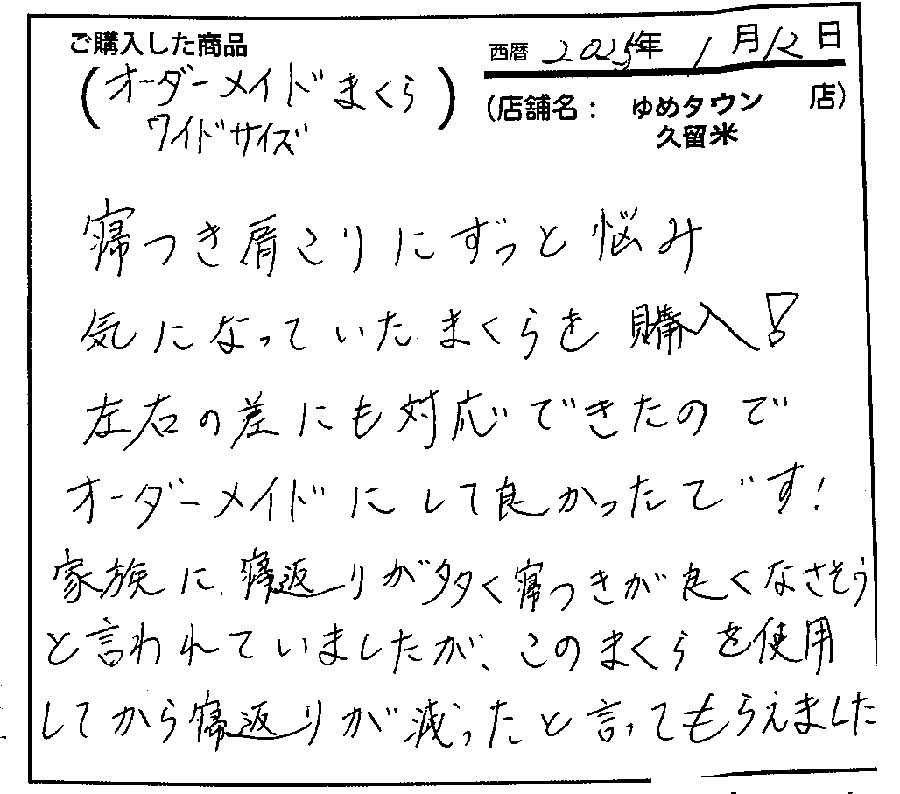 ご購入した商品
西暦 2025年 1月12日
(オーダーメイドまくら)
ワイドサイズ
(店舗名: ゆめタウン 店)
久留米
寝つき肩こりにずっと悩み
気になっていたまくらを購入!
左右の差にも対応できたので
オーダーメイドにして良かったです!
家族に寝返りが多く寝つきが良くなさそう
と言われていましたが、このまくらを使用
してから寝返りが減ったと言ってもらえました